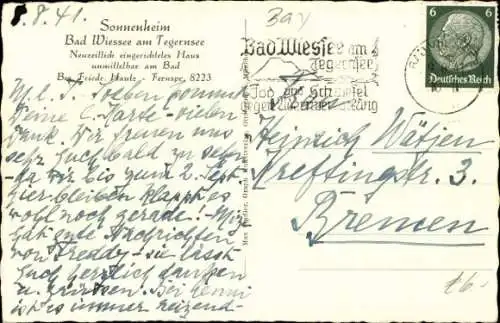 8.8.41.
Sonnenheim
Bad Wiessee am Tegernsee
Neuzeitlich eingerichtetes Haus
unmittelbar am Bad
Bes. Friedr. Hautz - Fernspr. 8223
M. l. T. Soeben kommt
Deine l. Karte - vielen
Dank. Wir freuen uns
sehr Euch bald zu sehen
- da wir bis zum 2. Sept
hier bleiben klappt es
wohl noch gerade! -
hat gute Nachrichten
von Freddy - sie lässt
Euch herzlich danken
u. grüssen. Bei
ist es immer reizend -
Bay
Bad Wiessee am
Tegernsee
Jod und Schwefel
gegen
6 6
Deutsches Reich
Heinrich Wätjen
Kreftingstr. 3.
Bremen